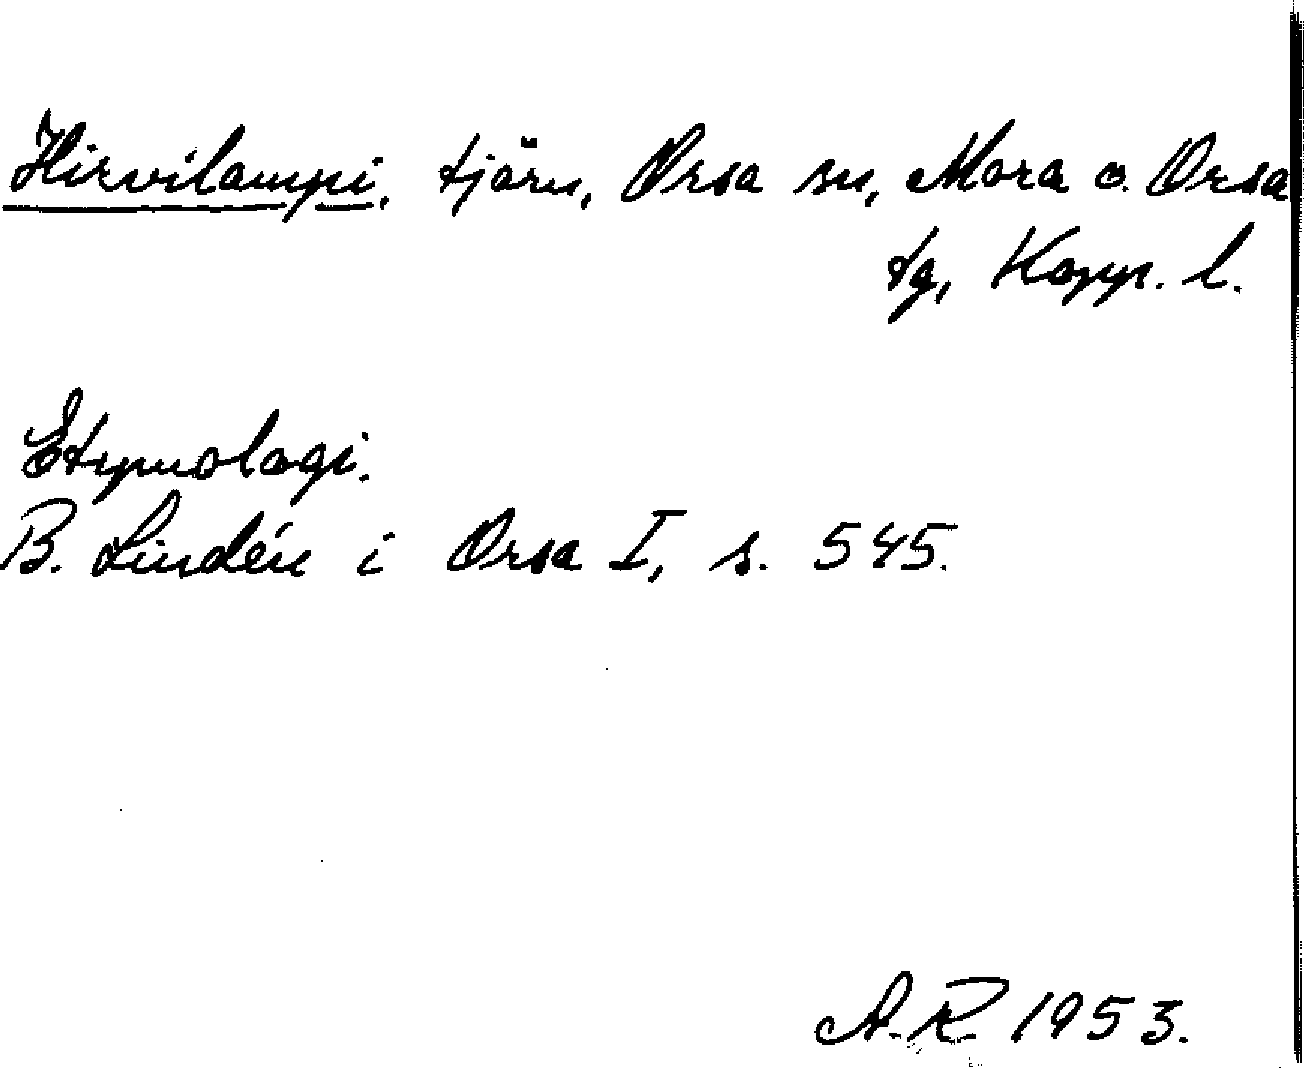 Hirvilampi, tjärn, Orsa sn, Mora o. Orsa
tg, Kopp. l.
Etymologi.
B. Lindén i Orsa I, s. 545.
A.R. 1953.